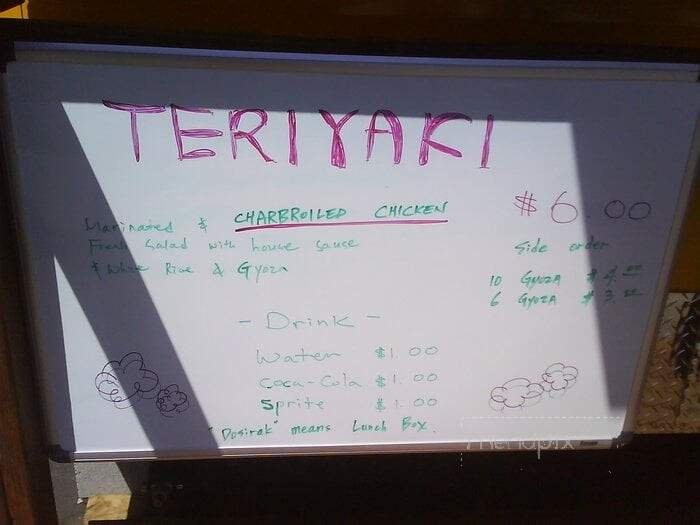 TERIYAKI
Marinated & CHARBROILED CHICKEN $6.00
Fresh Salad with house sauce
& White Rice & Gyoza
Side order
10 GYOZA $4.00
6 GYOZA $3.00
- Drink -
Water $1.00
Coca-Cola $1.00
Sprite $1.00
"Dosirak" means Lunch Box.
menupix